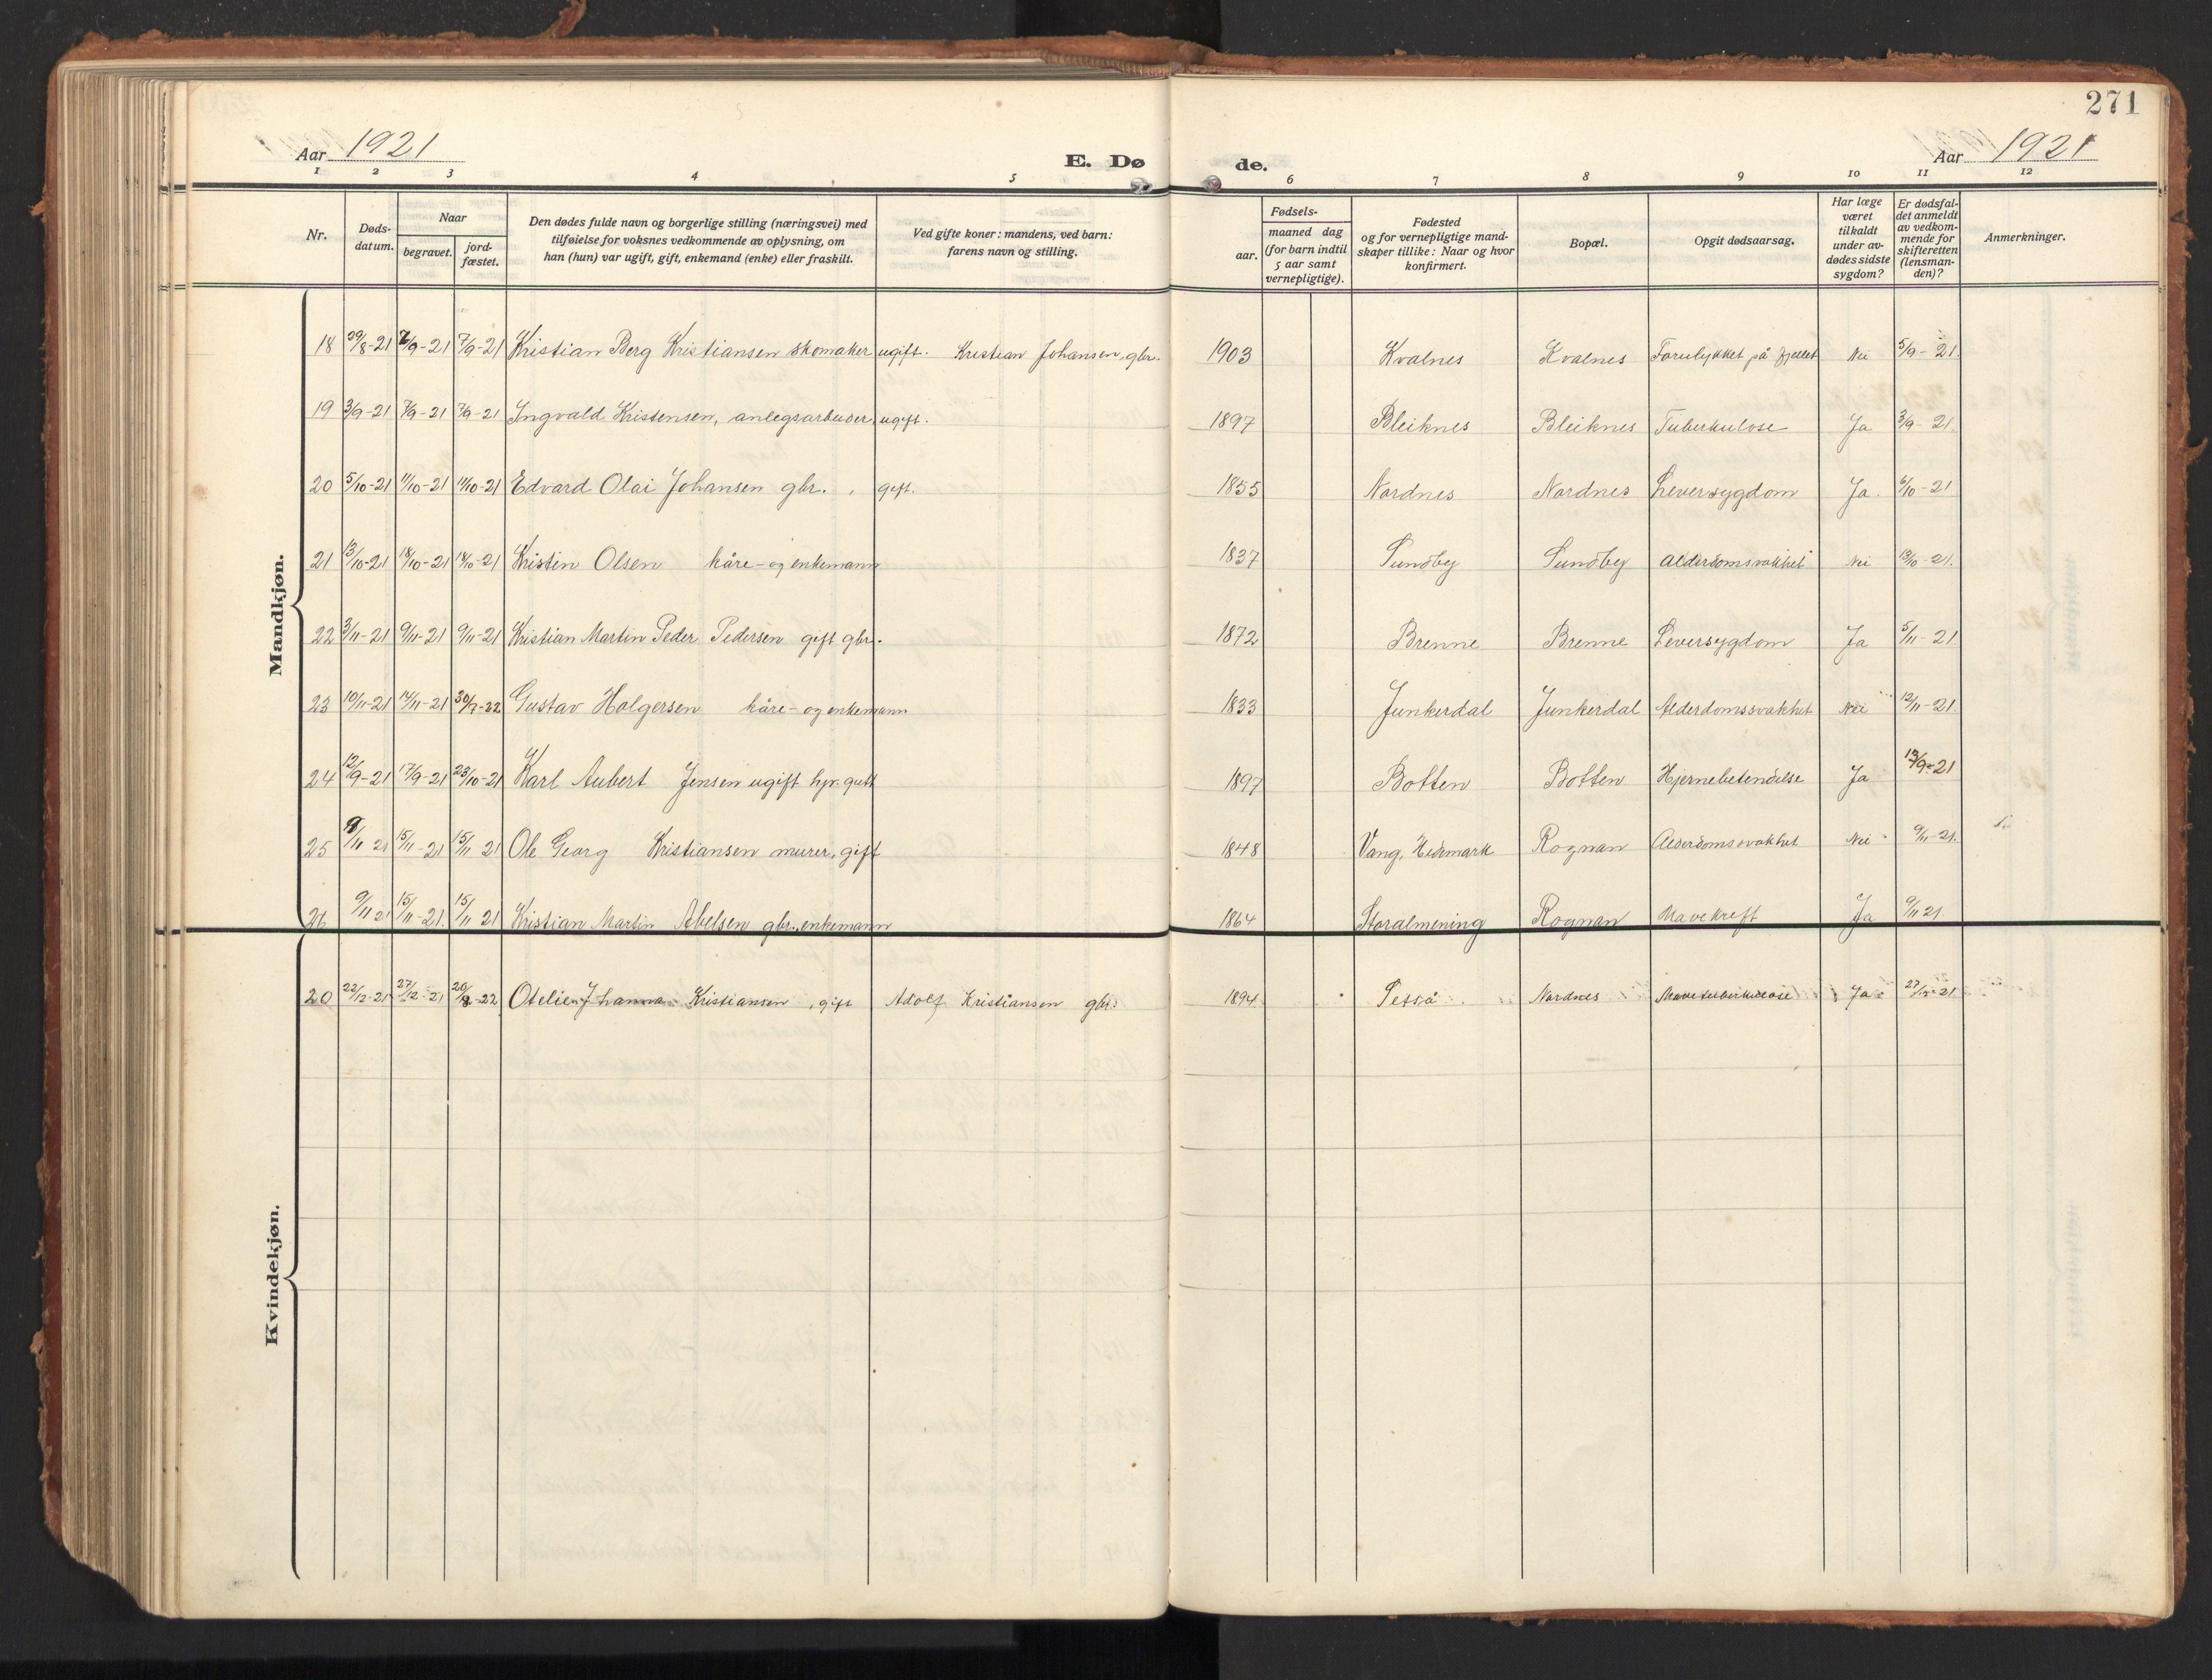 271
Aar 1921
E. Dø
de.
Aar 1921
1 2 3 4 5 6 7 8 9 10 11 12
Nr.
Døds-
datum.
Naar
begravet.
jord-
fæstet.
Den dødes fulde navn og borgerlige stilling (næringsvei) med
tilføielse for voksnes vedkommende av oplysning, om
han (hun) var ugift, gift, enkemand (enke) eller fraskilt.
Ved gifte koner: mandens, ved barn:
farens navn og stilling.
Fødsels-
aar.
maaned dag
(for barn indtil
5 aar samt
vernepligtige).
Fødested
og for vernepligtige mand-
skaper tillike: Naar og hvor
konfirmert.
Bopæl.
Opgit dødsaarsag.
Har læge
været
tilkaldt
under av-
dødes sidste
sygdom?
Er dødsfal-
det anmeldt
av vedkom-
mende for
skifteretten
(lensman-
den)?
Anmerkninger.
Mandkjøn.
18 29/8-21 7/9-21 7/9-21 Kristian Berg Kristiansen skomaker ugift. Kristian Johansen, gbr. 1903 Kvalnes Kvalnes Forulykket på fjellet Nei 5/9-21.
19 3/9-21 7/9-21 7/9-21 Ingvald Kristensen, anlegsarbeider, ugift. 1897 Bleiknes Bleiknes Tuberkulose Ja 3/9-21.
20 5/10-21 11/10-21 11/10-21 Edvard Olai Johansen gbr. gift. 1855 Nordnes Nordnes Leversygdom Ja. 6/10-21
21 13/10-21 18/10-21 18/10-21 Kristin Olsen kåre- og enkemann 1837 Sundby Sundby Alderdomsvakhet Nei 13/10-21.
22 3/11-21 9/11-21 9/11-21 Kristian Martin Peder Pedersen gift gbr. 1872 Brenne Brenne Leversygdom Ja 5/11-21.
23 10/11-21 14/11-21 30/7-22 Gustav Holgersen kåre- og enkemann 1833 Junkerdal Junkerdal Alderdomssvakhet Nei 12/11-21.
24 12/9-21 17/9-21 23/10-21 Karl Aubert Jensen ugift hjv. gutt 1897 Botten Botten Hjernebetendelse Ja 13/9-21
25 9/11 21 15/11-21 15/11 21 Ole Georg Kristiansen murer, gift 1848 Vang, Hedemark Rognan Alderdomssvakhet Nei 9/11-21.
26 9/11 21 15/11-21. 15/11 21 Kristian Martin Abelsen gbr., enkemann 1864 Storalmening Rognan Mavekreft Ja 9/11 21.
Kvindekjøn.
20 22/12-21 27/12-21 20/8-22 Otelie Johanna Kristiansen, gift Adolf Kristiansen gbr. 1894. Nordnes Mavetuberkulose Ja 27/12-21